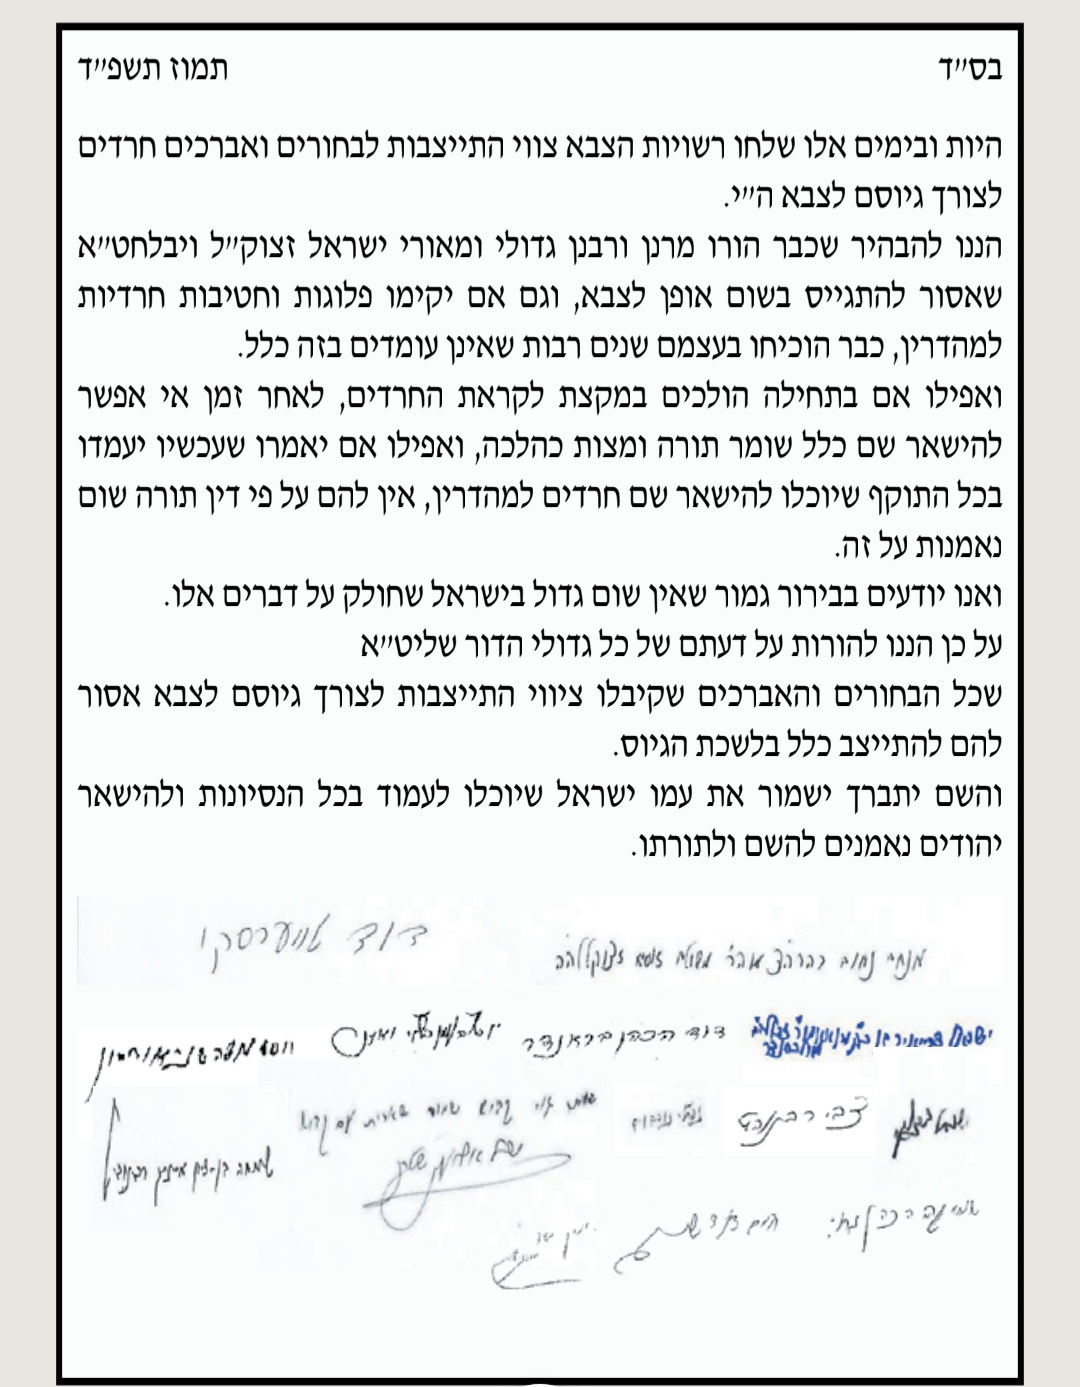 בס"ד
תמוז תשפ"ד
היות ובימים אלו שלחו רשויות הצבא צווי התייצבות לבחורים ואברכים חרדים
לצורך גיוסם לצבא ה"י.
הננו להבהיר שכבר הורו מרנן ורבנן גדולי ומאורי ישראל זצוק"ל ויבלחט"א
שאסור להתגייס בשום אופן לצבא, וגם אם יקימו פלוגות וחטיבות חרדיות
למהדרין, כבר הוכיחו בעצמם שנים רבות שאינן עומדים בזה כלל.
ואפילו אם בתחילה הולכים במקצת לקראת החרדים, לאחר זמן אי אפשר
להישאר שם כלל שומר תורה ומצות כהלכה, ואפילו אם יאמרו שעכשיו יעמדו
בכל התוקף שיוכלו להישאר שם חרדים למהדרין, אין להם על פי דין תורה שום
נאמנות על זה.
ואנו יודעים בבירור גמור שאין שום גדול בישראל שחולק על דברים אלו.
על כן הננו להורות על דעתם של כל גדולי הדור שליט"א
שכל הבחורים והאברכים שקיבלו ציווי התייצבות לצורך גיוסם לצבא אסור
להם להתייצב כלל בלשכת הגיוס.
והשם יתברך ישמור את עמו ישראל שיוכלו לעמוד בכל הנסיונות ולהישאר
יהודים נאמנים להשם ולתורתו.
דוד טווערסקי
מנחם נחום
דוד הכהן בראנדר
צבי רבינוביץ